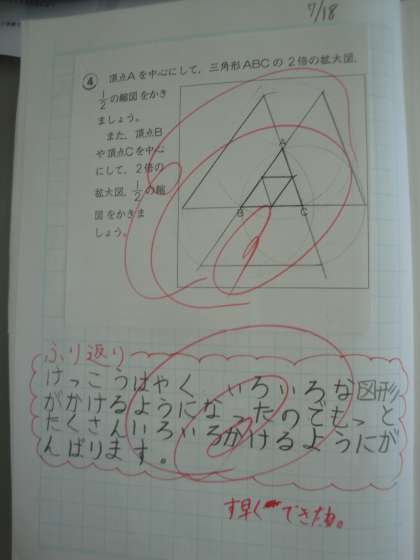 7/18
④ 頂点Aを中心にして、三角形ABCの2倍の拡大図、
1/2の縮図をかき
ましょう。
また、頂点B
や頂点Cを中心
にして、2倍の
拡大図、1/2の縮
図をかきま
しょう。
A
B
C
ふり返り
けっこうはやく、いろいろな図形
がかけるようになったのでもっと
たくさんいろいろかけるようにが
んばります。
す早くできたね。